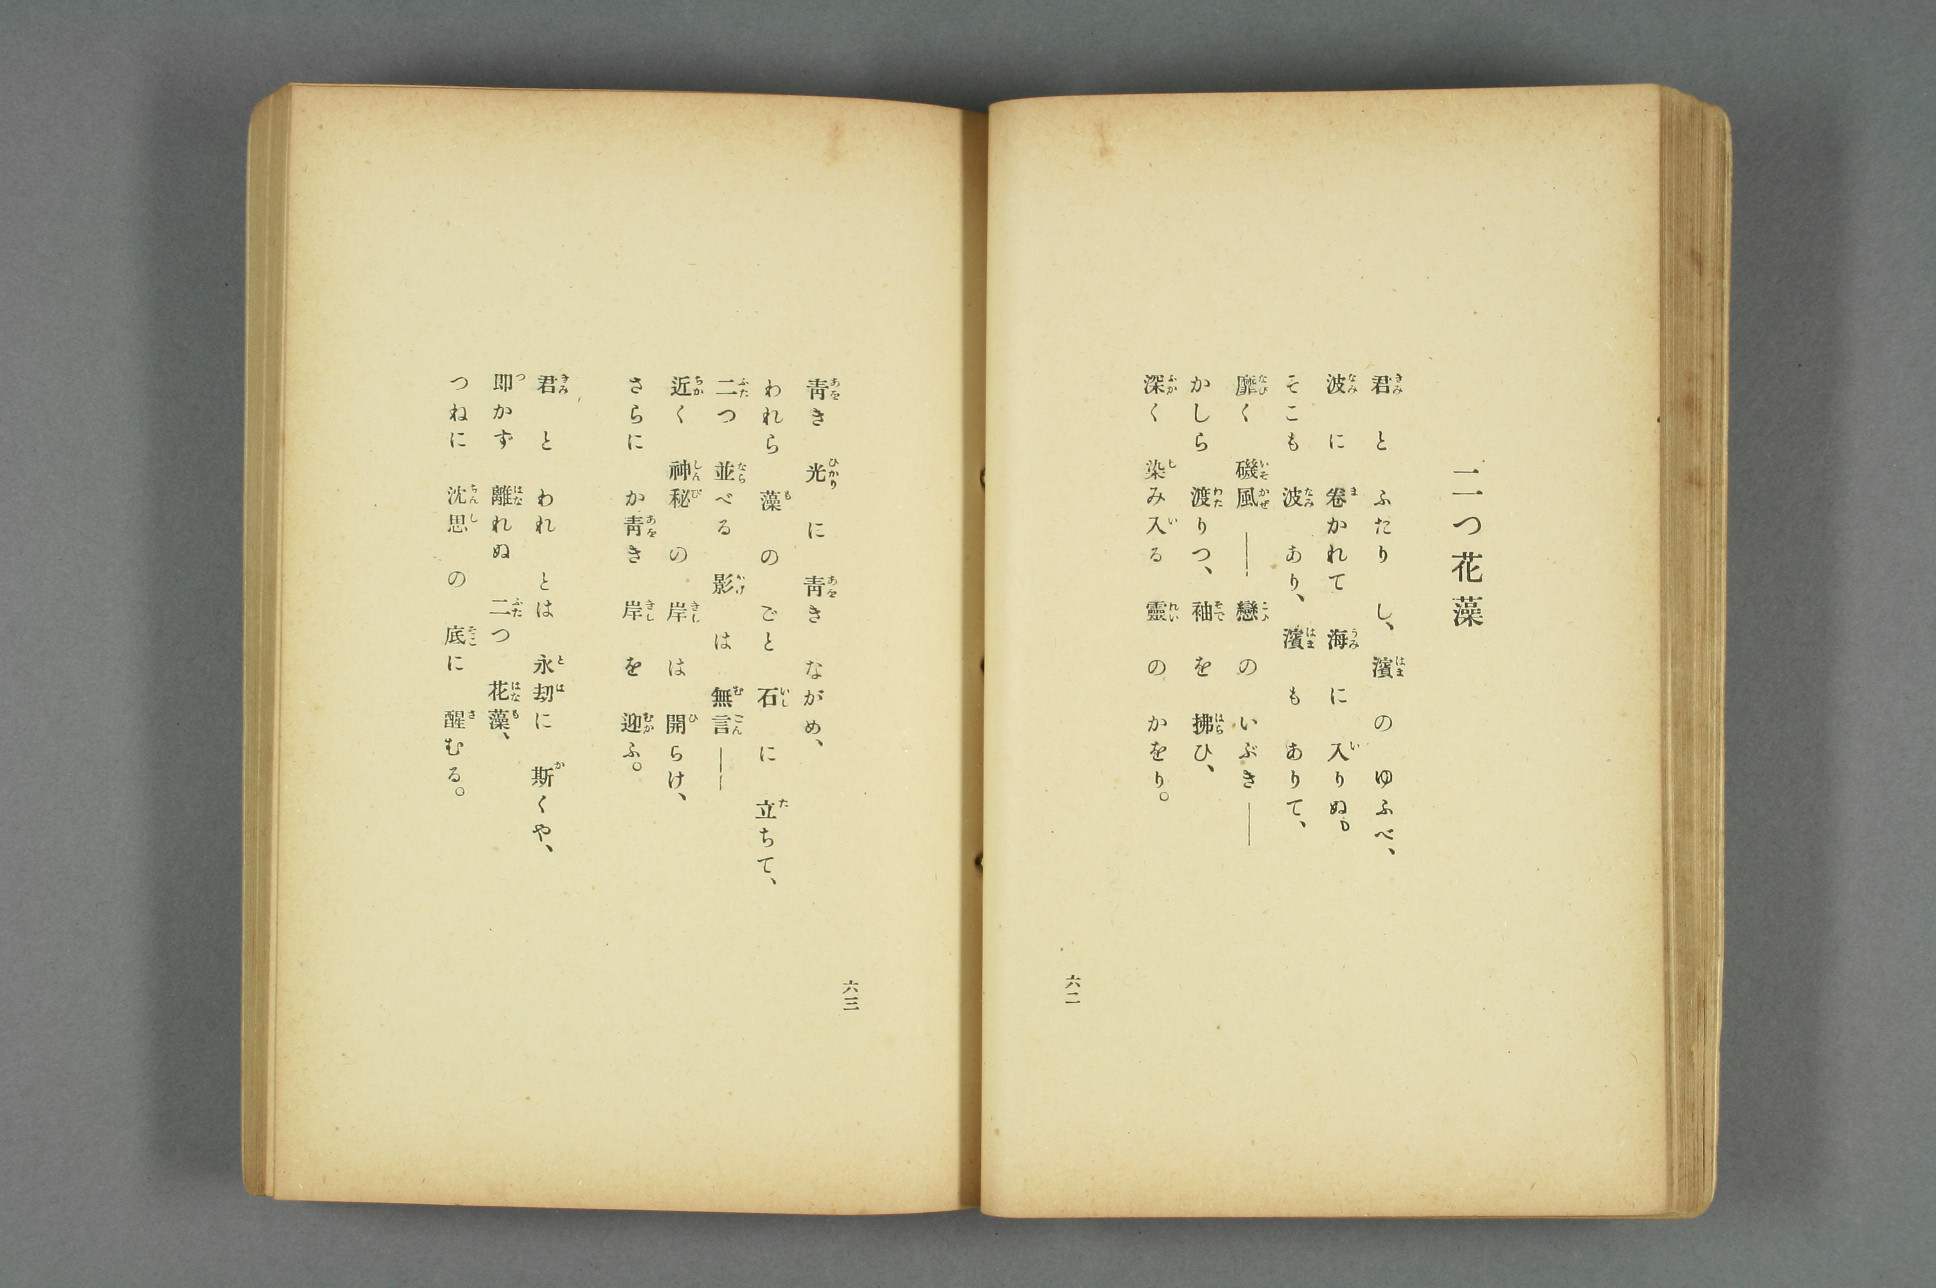 二つ花藻
君と ふたり し、濱の ゆふべ、
波に 卷かれて 海に 入りぬ。
そこも 波 あり、濱も ありて、
靡く 磯風 ── 戀の いぶき ──
かしら 渡りつ、袖を 拂ひ、
深く 染み入る 靈の かをり。
六二
靑き 光に 靑き ながめ、
われら 藻の ごと 石に 立ちて、
二つ 並べる 影は 無言 ──
近く 神秘の 岸は 開らけ、
さらに か靑き 岸を 迎ふ。
君と われとは 永劫に 斯くや、
即かず 離れぬ 二つ 花藻、
つねに 沈思の 底に 醒むる。
六三